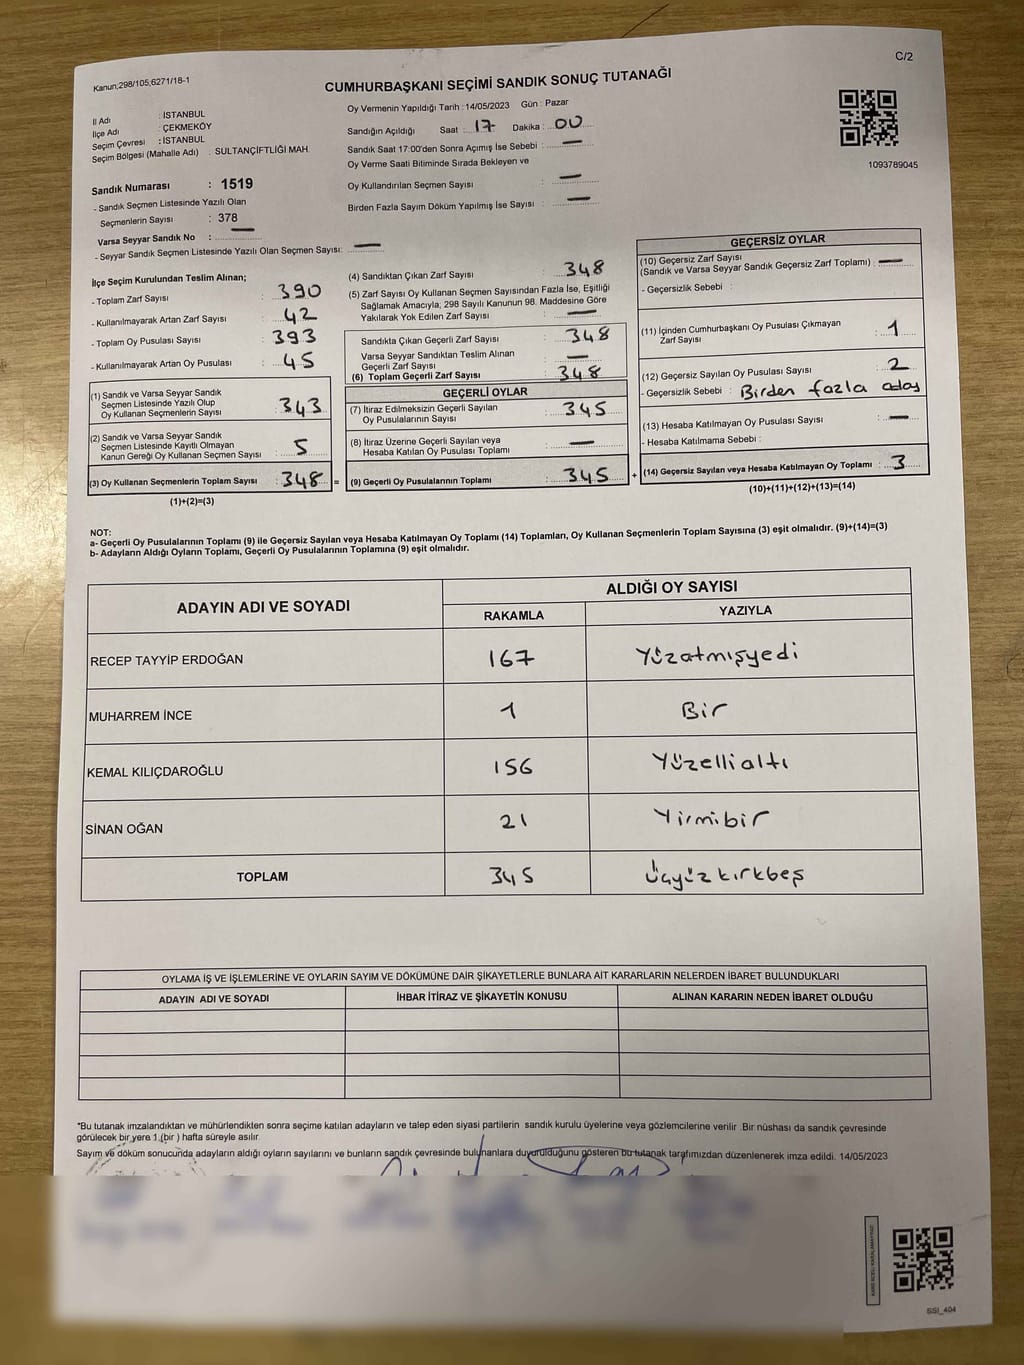 C/2
Kanun,298/105,6271/18-1
CUMHURBAŞKANI SEÇİMİ SANDIK SONUÇ TUTANAĞI
İl Adı : İSTANBUL
İlçe Adı : ÇEKMEKÖY
Seçim Çevresi : İSTANBUL
Seçim Bölgesi (Mahalle Adı) : SULTANÇİFTLİĞİ MAH.
Sandık Numarası : 1519
- Sandık Seçmen Listesinde Yazılı Olan
Seçmenlerin Sayısı : 378
Varsa Seyyar Sandık No : —
- Seyyar Sandık Seçmen Listesinde Yazılı Olan Seçmen Sayısı: —
Oy Vermenin Yapıldığı Tarih : 14/05/2023 Gün : Pazar
Sandığın Açıldığı Saat : 17 Dakika : 00
Sandık Saat 17:00'den Sonra Açımış İse Sebebi : —
Oy Verme Saati Bitiminde Sırada Bekleyen ve
Oy Kullandırılan Seçmen Sayısı : —
Birden Fazla Sayım Döküm Yapılmış İse Sayısı : —
1093789045
İlçe Seçim Kurulundan Teslim Alınan;
- Toplam Zarf Sayısı : 390
- Kullanılmayarak Artan Zarf Sayısı : 42
- Toplam Oy Pusulası Sayısı : 393
- Kullanılmayarak Artan Oy Pusulası : 45
(1) Sandık ve Varsa Seyyar Sandık
Seçmen Listesinde Yazılı Olup
Oy Kullanan Seçmenlerin Sayısı : 343
(2) Sandık ve Varsa Seyyar Sandık
Seçmen Listesinde Kayıtlı Olmayan
Kanun Gereği Oy Kullanan Seçmen Sayısı : 5
(3) Oy Kullanan Seçmenlerin Toplam Sayısı : 348 =
(1)+(2)=(3)
(4) Sandıktan Çıkan Zarf Sayısı : 348
(5) Zarf Sayısı Oy Kullanan Seçmen Sayısından Fazla İse, Eşitliği
Sağlamak Amacıyla, 298 Sayılı Kanunun 98. Maddesine Göre
Yakılarak Yok Edilen Zarf Sayısı : —
Sandıkta Çıkan Geçerli Zarf Sayısı : 348
Varsa Seyyar Sandıktan Teslim Alınan
Geçerli Zarf Sayısı : —
(6) Toplam Geçerli Zarf Sayısı : 348
GEÇERLİ OYLAR
(7) İtiraz Edilmeksizin Geçerli Sayılan
Oy Pusulalarının Sayısı : 345
(8) İtiraz Üzerine Geçerli Sayılan veya
Hesaba Katılan Oy Pusulası Toplamı : —
(9) Geçerli Oy Pusulalarının Toplamı : 345 +
GEÇERSİZ OYLAR
(10) Geçersiz Zarf Sayısı
(Sandık ve Varsa Seyyar Sandık Geçersiz Zarf Toplamı) : —
- Geçersizlik Sebebi :
(11) İçinden Cumhurbaşkanı Oy Pusulası Çıkmayan
Zarf Sayısı : 1
(12) Geçersiz Sayılan Oy Pusulası Sayısı : 2
- Geçersizlik Sebebi : Birden fazla aday
(13) Hesaba Katılmayan Oy Pusulası Sayısı : —
- Hesaba Katılmama Sebebi :
(14) Geçersiz Sayılan veya Hesaba Katılmayan Oy Toplamı : 3
(10)+(11)+(12)+(13)=(14)
NOT:
a- Geçerli Oy Pusulalarının Toplamı (9) ile Geçersiz Sayılan veya Hesaba Katılmayan Oy Toplamı (14) Toplamları, Oy Kullanan Seçmenlerin Toplam Sayısına (3) eşit olmalıdır. (9)+(14)=(3)
b- Adayların Aldığı Oyların Toplamı, Geçerli Oy Pusulalarının Toplamına (9) eşit olmalıdır.
ADAYIN ADI VE SOYADI ALDIĞI OY SAYISI
RAKAMLA YAZIYLA
RECEP TAYYİP ERDOĞAN 167 Yüzatmışyedi
MUHARREM İNCE 1 Bir
KEMAL KILIÇDAROĞLU 156 Yüzellialtı
SİNAN OĞAN 21 Yirmibir
TOPLAM 345 Üçyüzkırkbeş
OYLAMA İŞ VE İŞLEMLERİNE VE OYLARIN SAYIM VE DÖKÜMÜNE DAİR ŞİKAYETLERLE BUNLARA AİT KARARLARIN NELERDEN İBARET BULUNDUKLARI
ADAYIN ADI VE SOYADI İHBAR İTİRAZ VE ŞİKAYETİN KONUSU ALINAN KARARIN NEDEN İBARET OLDUĞU
*Bu tutanak imzalandıktan ve mühürlendikten sonra seçime katılan adayların ve talep eden siyasi partilerin sandık kurulu üyelerine veya gözlemcilerine verilir .Bir nüshası da sandık çevresinde
görülecek bir yere 1 (bir ) hafta süreyle asılır.
Sayım ve döküm sonucunda adayların aldığı oyların sayılarını ve bunların sandık çevresinde bulunanlara duyurulduğunu gösteren bu tutanak tarafımızdan düzenlenerek imza edildi. 14/05/2023
SSI_404